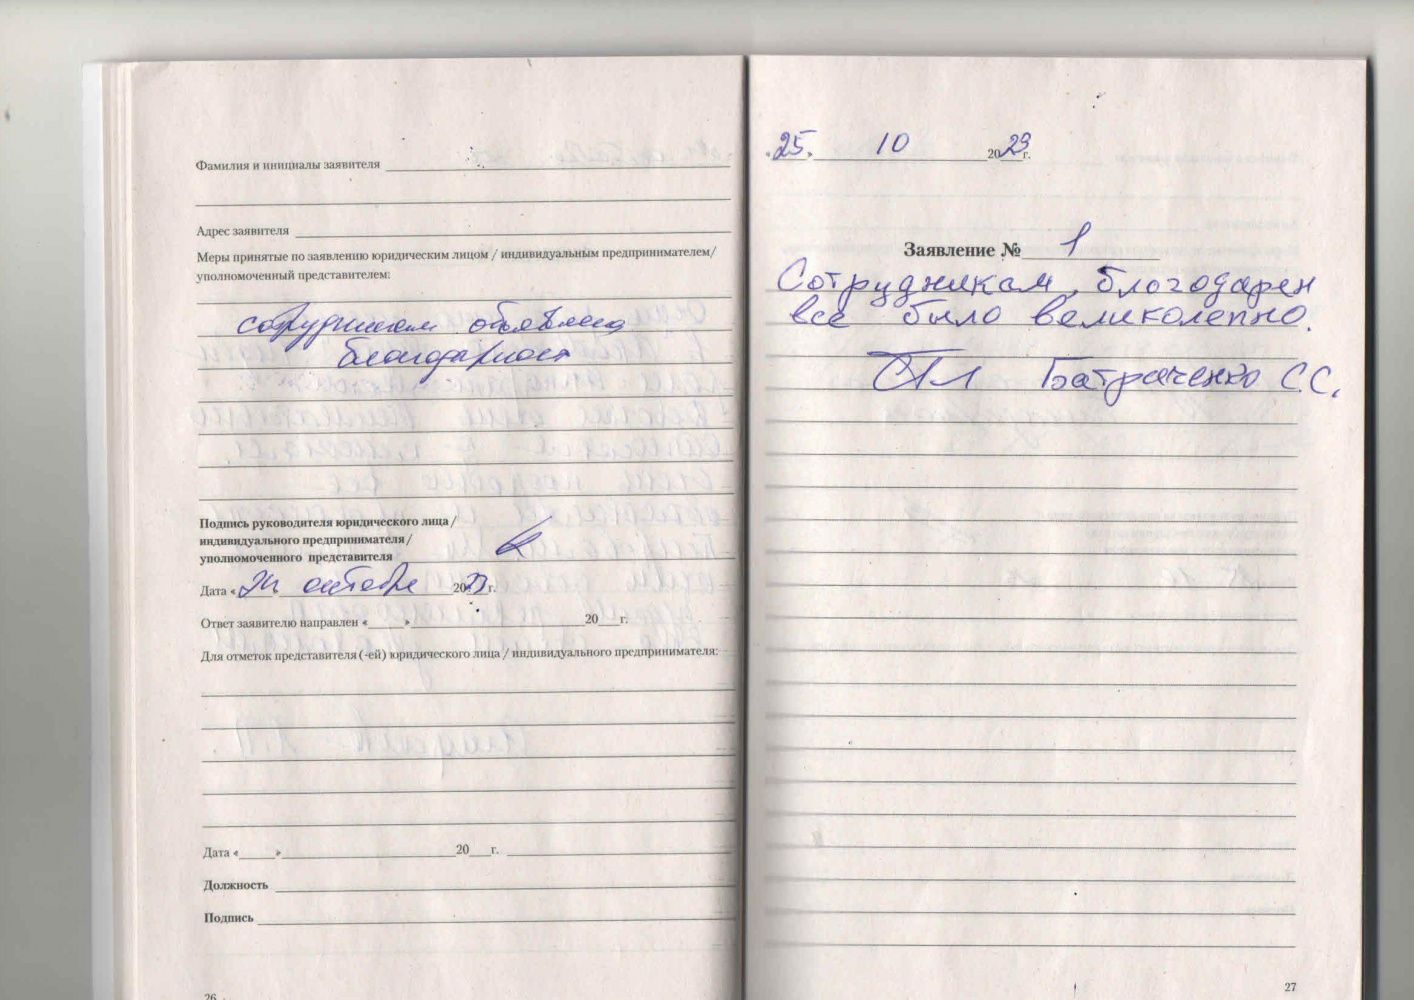 Фамилия и инициалы заявителя
Адрес заявителя
Меры принятые по заявлению юридическим лицом / индивидуальным предпринимателем/
уполномоченный представителем:
сотрудникам объявлена
благодарност
Подпись руководителя юридического лица/
индивидуального предпринимателя/
уполномоченного представителя
Дата « октября 2023г.
Ответ заявителю направлен «____»____ 20__г.
Для отметок представителя (-ей) юридического лица / индивидуального предпринимателя:
Дата «____»____ 20__г.
Должность
Подпись
26
25. 10 2023г.
Заявление № 1
Сотрудникам, благодарен
все было великолепно.
Батраченко С.С.
27